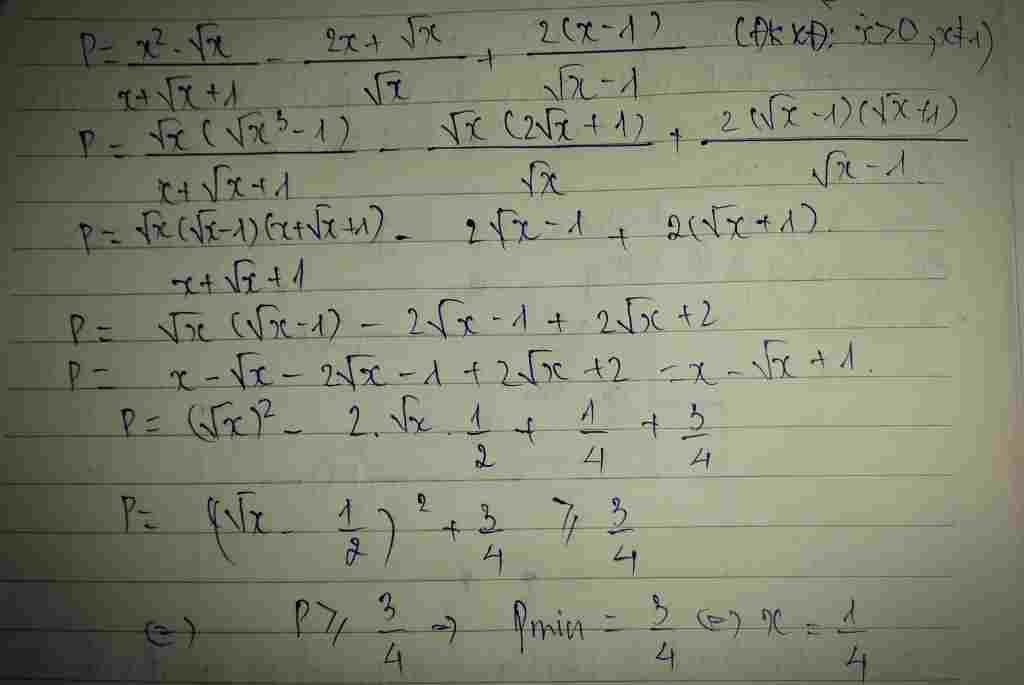 P = x² - √x / x + √x + 1 - 2x + √x / √x + 2(x - 1) / √x - 1 (ĐKXĐ: x > 0, x ≠ 1)
P = √x (√x³ - 1) / x + √x + 1 - √x (2√x + 1) / √x + 2(√x - 1)(√x + 1) / √x - 1
P = √x (√x - 1)(x + √x + 1) / x + √x + 1 - 2√x - 1 + 2(√x + 1).
P = √x (√x - 1) - 2√x - 1 + 2√x + 2
P = x - √x - 2√x - 1 + 2√x + 2 = x - √x + 1.
P = (√x)² - 2. √x . 1/2 + 1/4 + 3/4
P = (√x - 1/2)² + 3/4 ⩾ 3/4
⇔ P ⩾ 3/4 ⇒ Pmin = 3/4 ⇔ x = 1/4